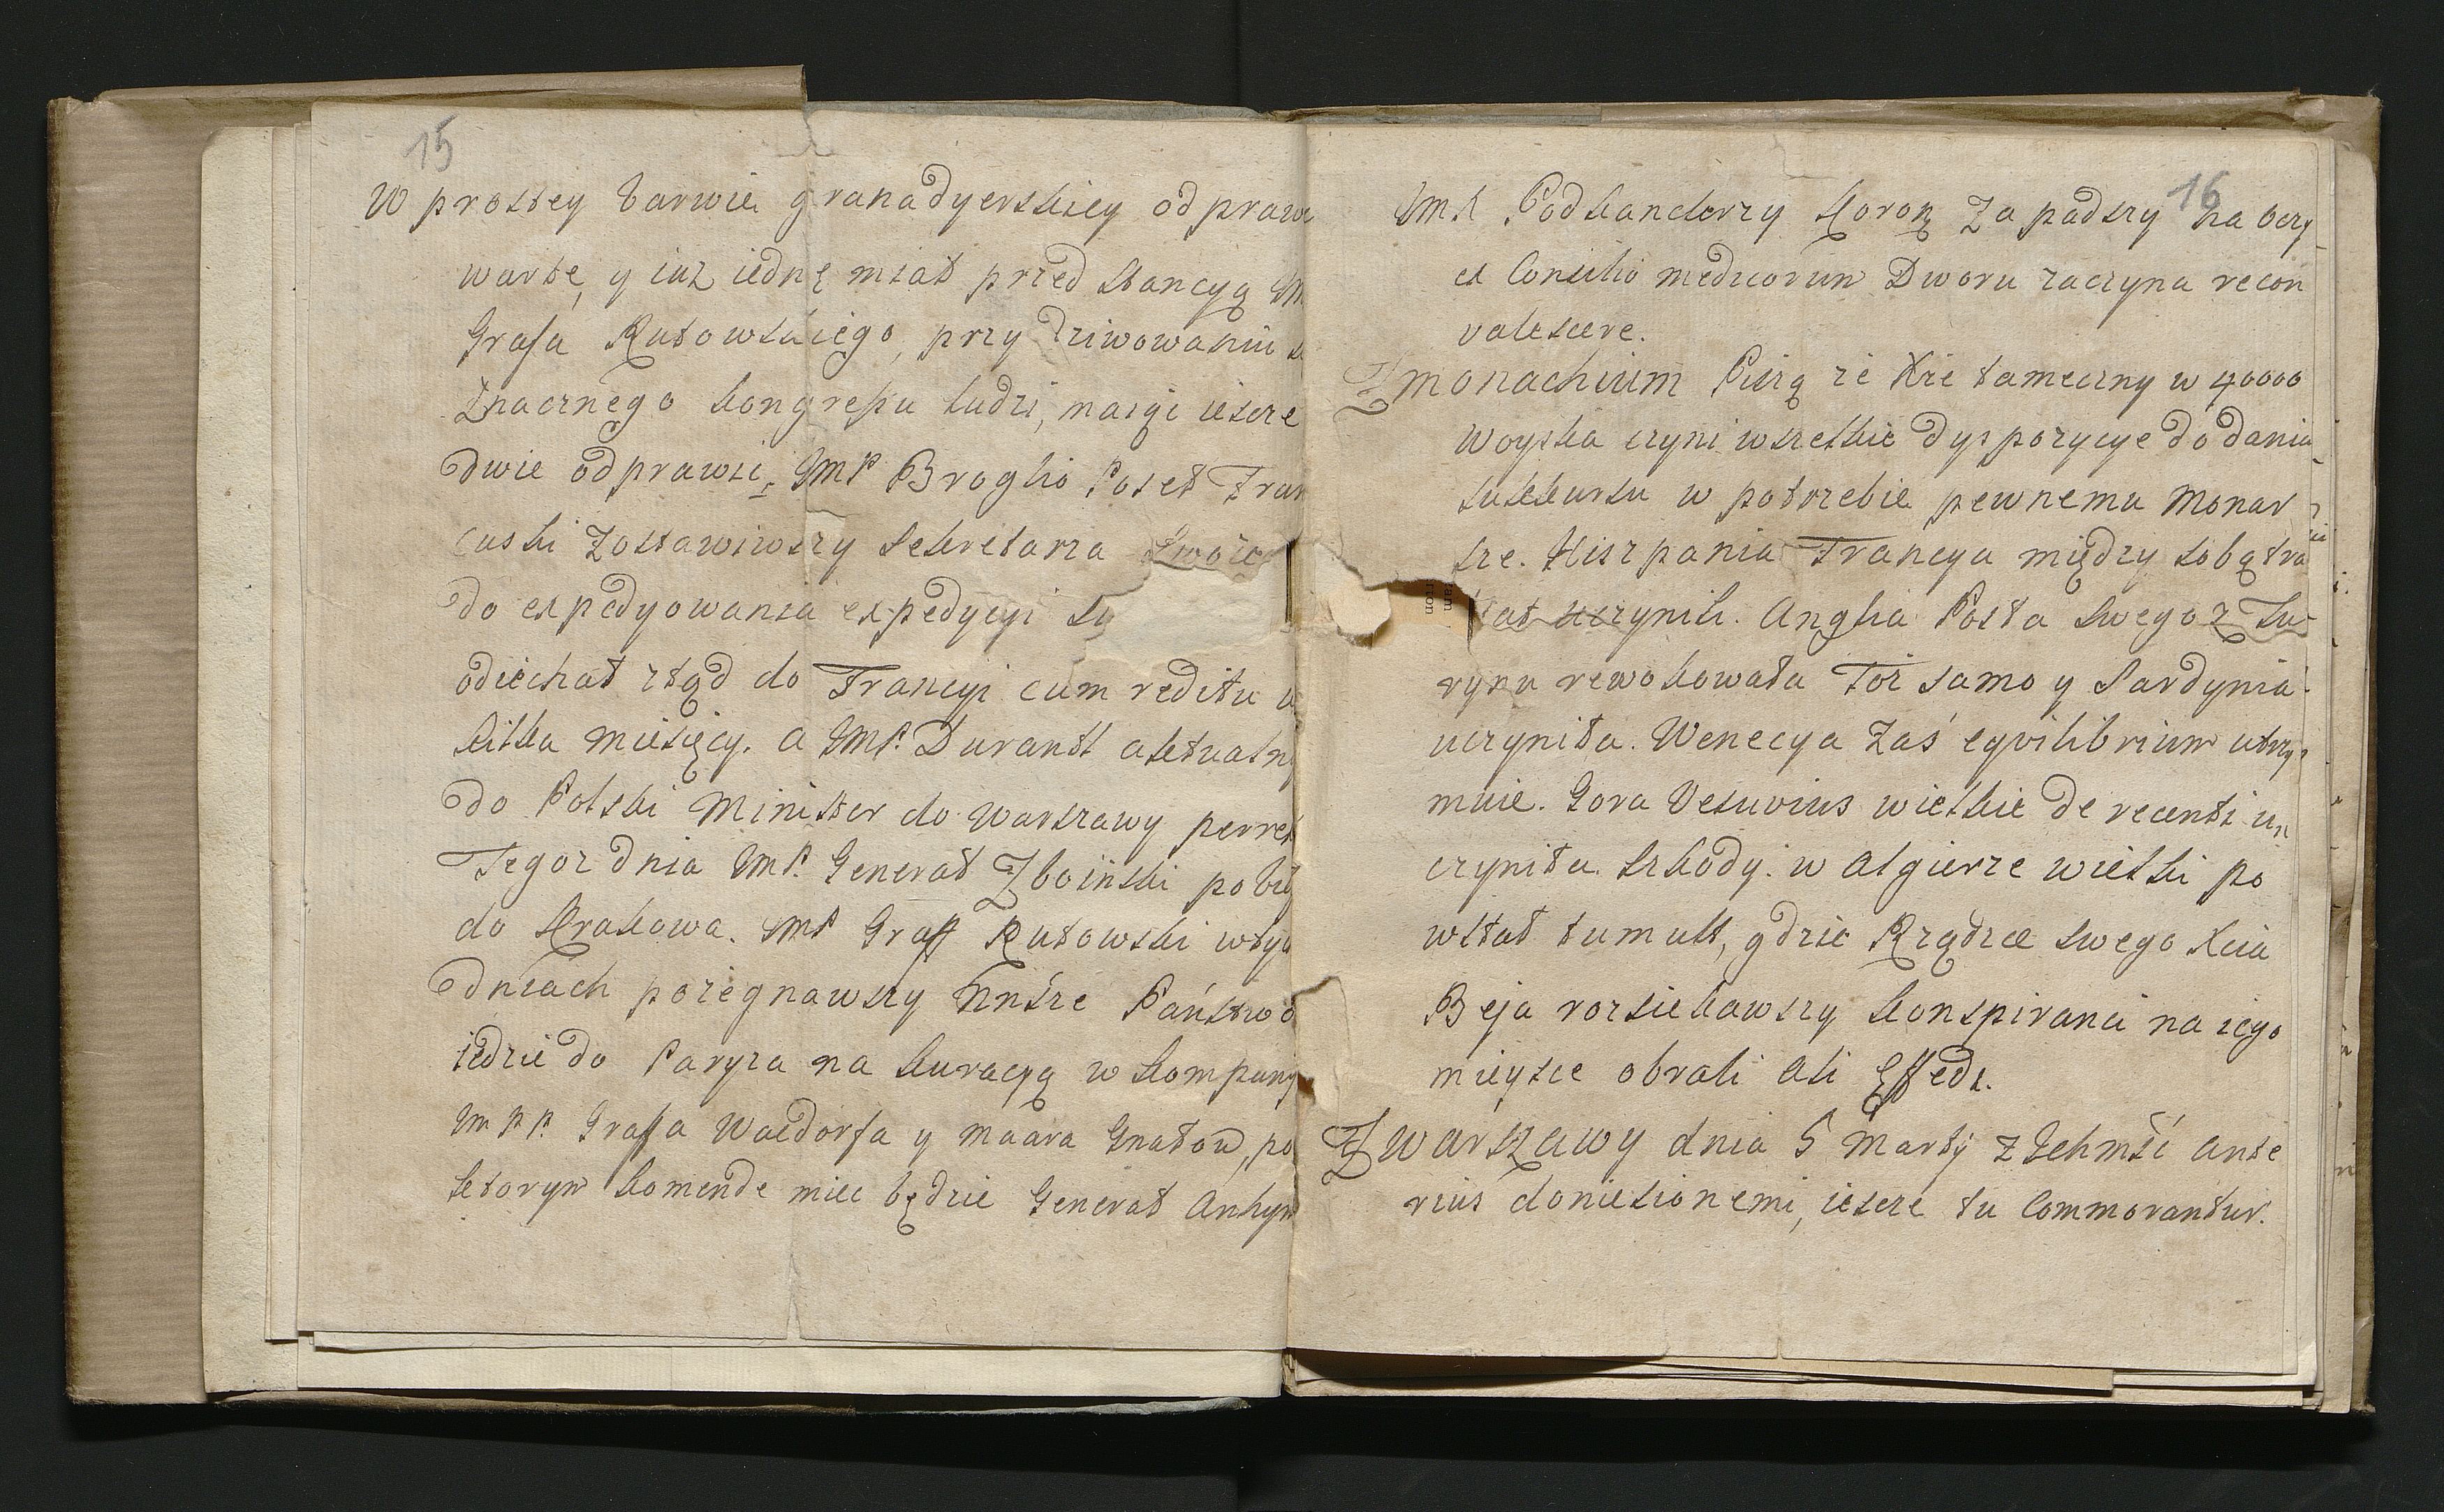 15
W prostey barwie granadyerskiey odpraw
warte, y iuz iednę miał przed stancyą Im
Grafa Rutowskiego, przy dziwowaniu s
Znacznego kongressu ludzi, maiąc iescze
dwie odprawic, ImP Broglio Poseł Fran
cuski Zostawiwszy Sekretarza Swoie
do expedyowania expedycyi Sy
odiechał ztąd do Francyi cum reditu w
kilka miesięcy. a ImP. Durantt aktualny
do Polski Minister do Warszawy perrex
Tegoz dnia ImP. Generał Zboiński pobieg
do Krakowa. ImP Graff Rutowski w tych
dniach pozegnawszy Nnsze Państwo
iedzie do Paryza na kuracyą w kompany
ImPP. Graffa Waldorfa y maara Gnatow, po
ktorym komende miec będzie Generał Anhyn
16
ImX Podkanclerzy Koronₓ Zapadszy na Oczy
ex Consilio medicorum Dworu zaczyna recon
valescere.
Z Monachium Piszą ze Xze tameczny w 40000
Woyska czyni wszelkie dyspozycye do dania
sukkursu w potrzebie pewnemu Monar
sze. Hiszpania Francya między sobą tra
ktat uczynili. Anglia Posła Swego z Tu-
rynu rewokowała Toż samo y Sardynia
uczyniła. Wenecya Zaś eqvilibrium utrzy-
muie. Gora Vesuvius wielkie de recenti u
czyniła Szkody. w Algierze wielki po
wstał tumult, gdzie Rządzce Swego Xcia
Beja rozsiekawszy konspiranci na iego
mieysce obrali Ali Effedi.
Z Warszawy dnia 5 Martij z Ichmść ante
rius doniesionemi, iescze tu Commorantur.